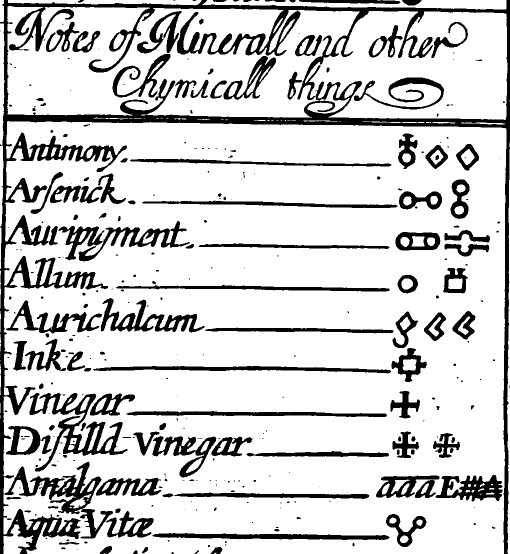 Notes of Minerall and other
Chymicall things
Antimony.
Arſenick.
Auripigment.
Allum.
Aurichalcum
Inke.
Vinegar
Diſtilld Vinegar.
Amalgama aaa E
Aqua Vitæ